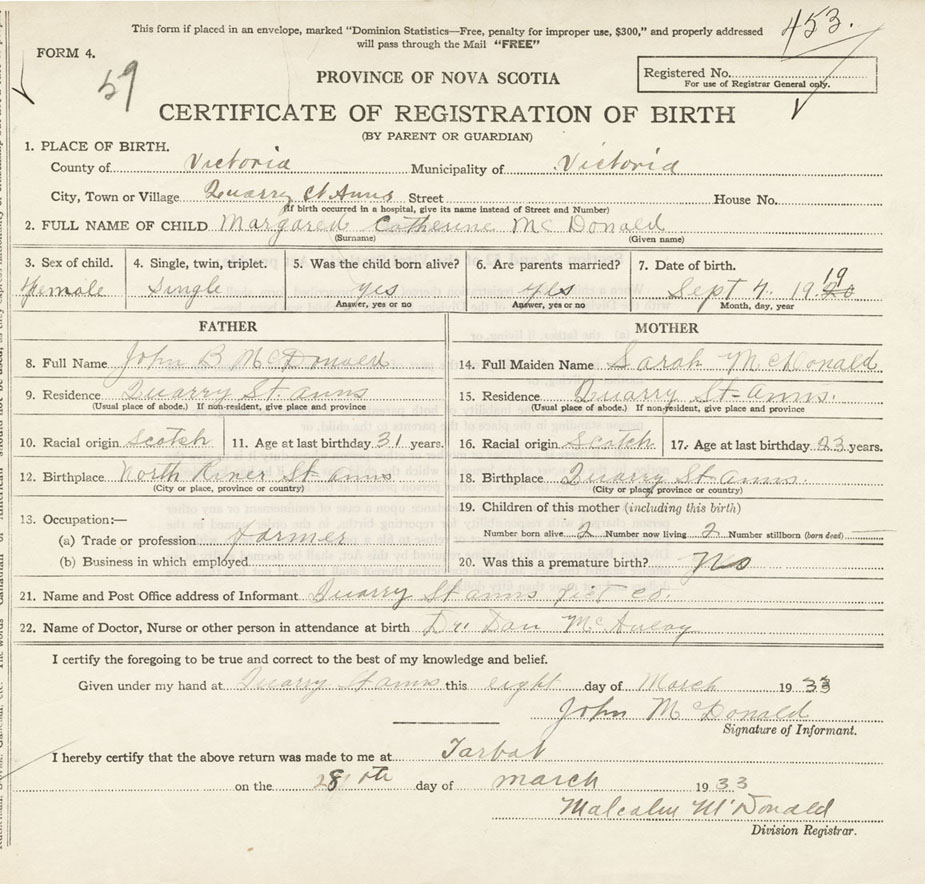 This form if placed in an envelope, marked "Dominion Statistics—Free, penalty for improper use, $300," and properly addressed
will pass through the Mail "FREE"
453.
FORM 4.
59
PROVINCE OF NOVA SCOTIA
Registered No.
For use of Registrar General only.
CERTIFICATE OF REGISTRATION OF BIRTH
(BY PARENT OR GUARDIAN)
1. PLACE OF BIRTH.
County of Victoria Municipality of Victoria
City, Town or Village Quarry St Anns Street House No.
(If birth occurred in a hospital, give its name instead of Street and Number)
2. FULL NAME OF CHILD Margared Catherine McDonald
(Surname) (Given name)
3. Sex of child. 4. Single, twin, triplet. 5. Was the child born alive? 6. Are parents married? 7. Date of birth.
female Single yes yes Sept 4. 19 19 20
Answer, yes or no Answer, yes or no Month, day, year
FATHER MOTHER
8. Full Name John B McDonald 14. Full Maiden Name Sarah McDonald
9. Residence Quarry St anns 15. Residence Quarry St-Anns.
(Usual place of abode.) If non-resident, give place and province (Usual place of abode.) If non-resident, give place and province
10. Racial origin Scotch 11. Age at last birthday 31 years. 16. Racial origin Scotch 17. Age at last birthday 23 years.
12. Birthplace North River St anns 18. Birthplace Quarry St anns.
(City or place, province or country) (City or place, province or country)
19. Children of this mother (including this birth)
13. Occupation:—
(a) Trade or profession farmer Number born alive 2 Number now living 2 Number stillborn (born dead)
(b) Business in which employed 20. Was this a premature birth? No
21. Name and Post Office address of Informant Quarry St anns Vict co.
22. Name of Doctor, Nurse or other person in attendance at birth Dr. Dan McAulay
I certify the foregoing to be true and correct to the best of my knowledge and belief.
Given under my hand at Quarry St anns this eight day of March 1933
John McDonald
Signature of Informant.
I hereby certify that the above return was made to me at Tarbot
on the 28 day of march 1933
Malcolm McDonald
Division Registrar.